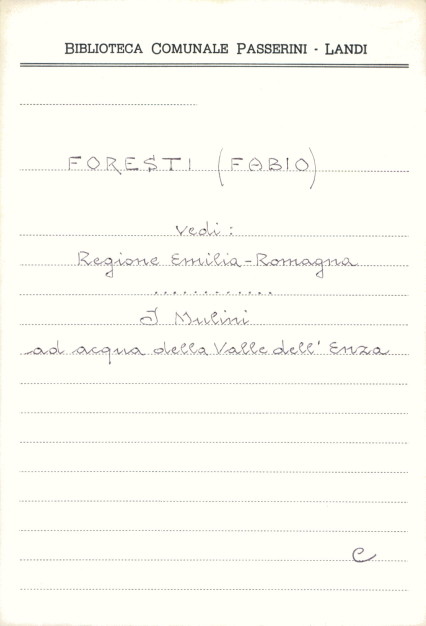 BIBLIOTECA COMUNALE PASSERINI - LANDI
FORESTI (FABIO)
Vedi :
Regione Emilia-Romagna
............
I Mulini
ad acqua della Valle dell' Enza
C